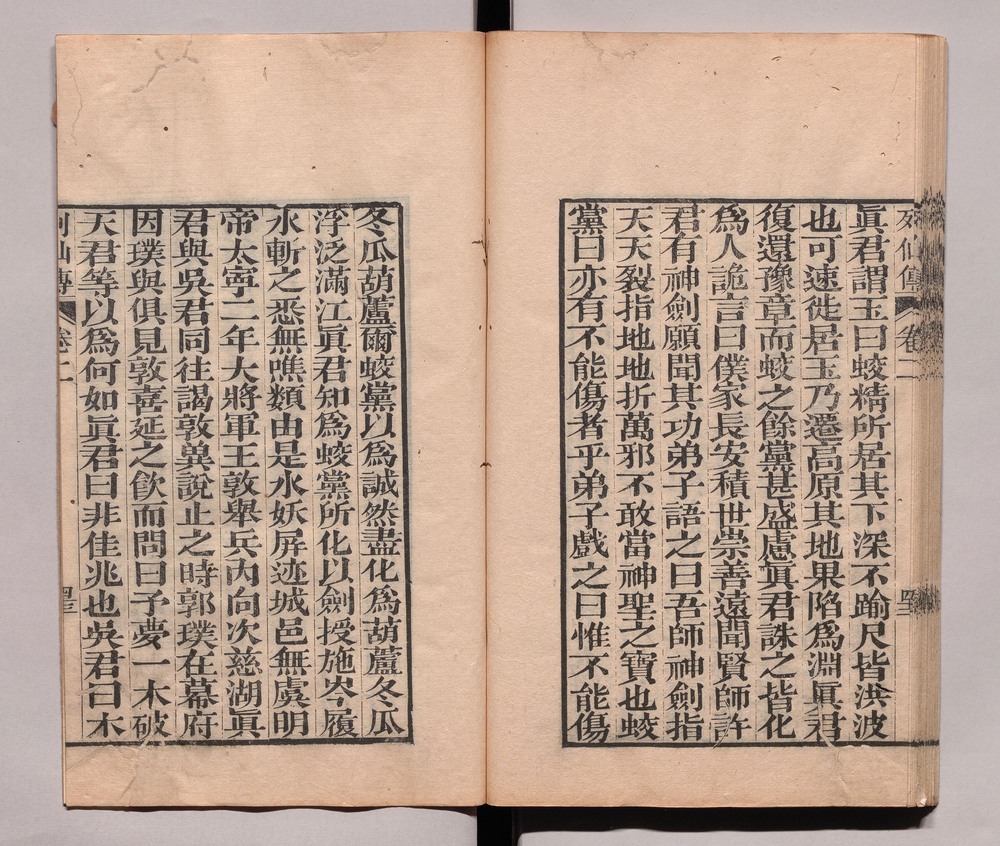 列仙傳 卷二 四三
眞君謂玉曰蛟精所居其下深不踰尺皆洪波
也可速徙居玉乃遷高原其地果陷爲淵眞君
復還豫章而蛟之餘黨甚盛慮眞君誅之皆化
爲人詭言曰僕家長安積世崇善遠聞賢師許
君有神劍願聞其功弟子語之曰吾師神劍指
天天裂指地地折萬邪不敢當神聖之寶也蛟
黨曰亦有不能傷者乎弟子戲之曰惟不能傷
冬瓜葫蘆爾蛟黨以爲誠然盡化爲葫蘆冬瓜
浮泛滿江眞君知爲蛟黨所化以劍授施岑履
水斬之悉無噍類由是水妖屏迹城邑無虞明
帝太寧二年大將軍王敦舉兵內向次慈湖眞
君與吳君同往謁敦兾說止之時郭璞在幕府
因璞與俱見敦喜延之飲而問曰予夢一木破
天君等以爲何如眞君曰非佳兆也吳君曰木
列仙傳 卷二 四三